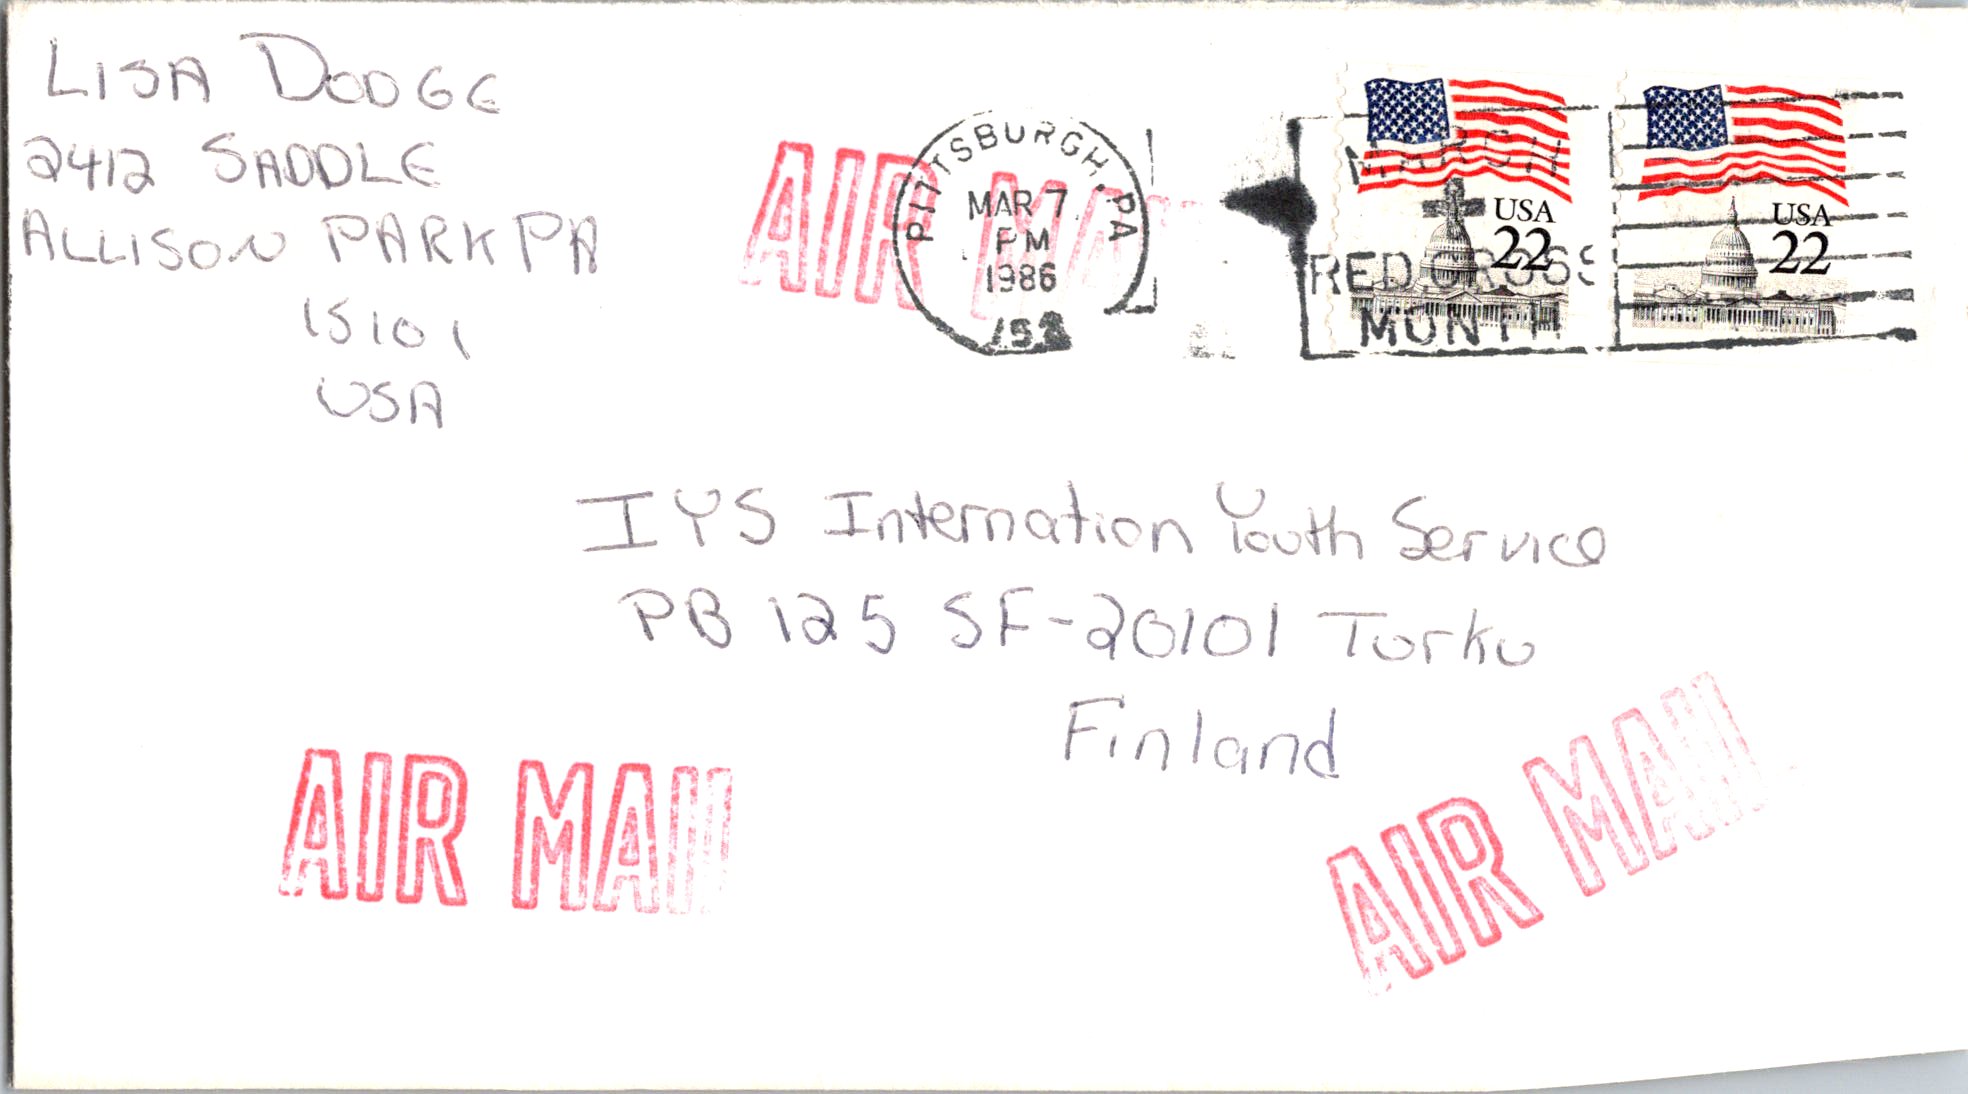 LISA DODGE
2412 SADDLE
ALLISON PARK PA
15101
USA
AIR MA
PITTSBURGH, PA
MAR 7
PM
1986
152
MARCH
RED CROSS
MONTH
USA
22
USA
22
IYS Internation Youth Service
PB 125 SF-20101 Turku
Finland
AIR MAIL
AIR MAIL